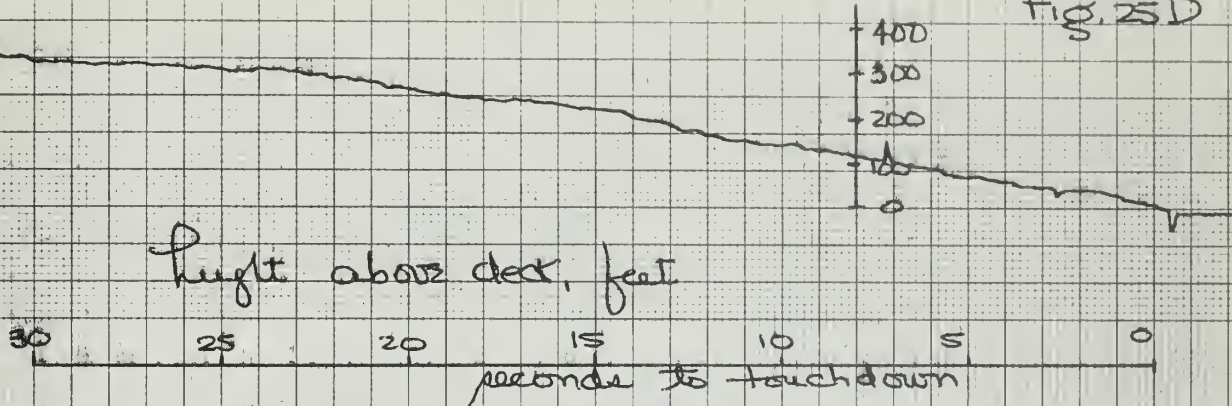 Fig. 25 D
400
300
200
100
0
height above deck, feet
30 25 20 15 10 5 0
seconds to touchdown